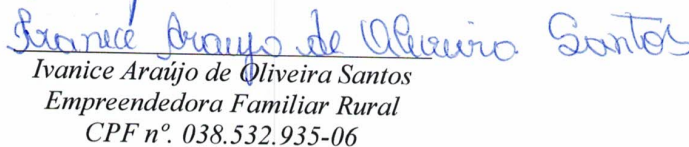 Ivanice Araujo de Oliveira Santos
Ivanice Araújo de Oliveira Santos
Empreendedora Familiar Rural
CPF nº. 038.532.935-06